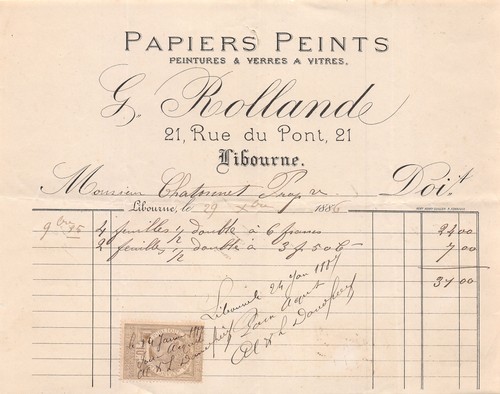 PAPIERS PEINTS
PEINTURES & VERRES A VITRES.
G. Rolland
21, Rue du Pont, 21
Libourne.
Monsieur Doit
Libourne, le 29 Xbre 1886
9bre 15 4 feuilles 1/2 double à 6 francs 24 00
2 feuilles 1/2 double à 3 f. 50 c 7 00
31 00
Libourne 24 Jan 1887
Pour Acquit